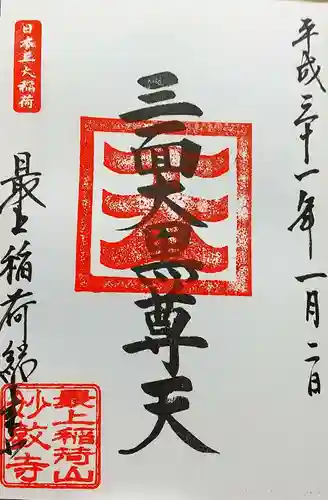 平成三十一年一月二日
三面大黒尊天
日本三大稲荷
最上稲荷総本山
最上稲荷山
妙教寺